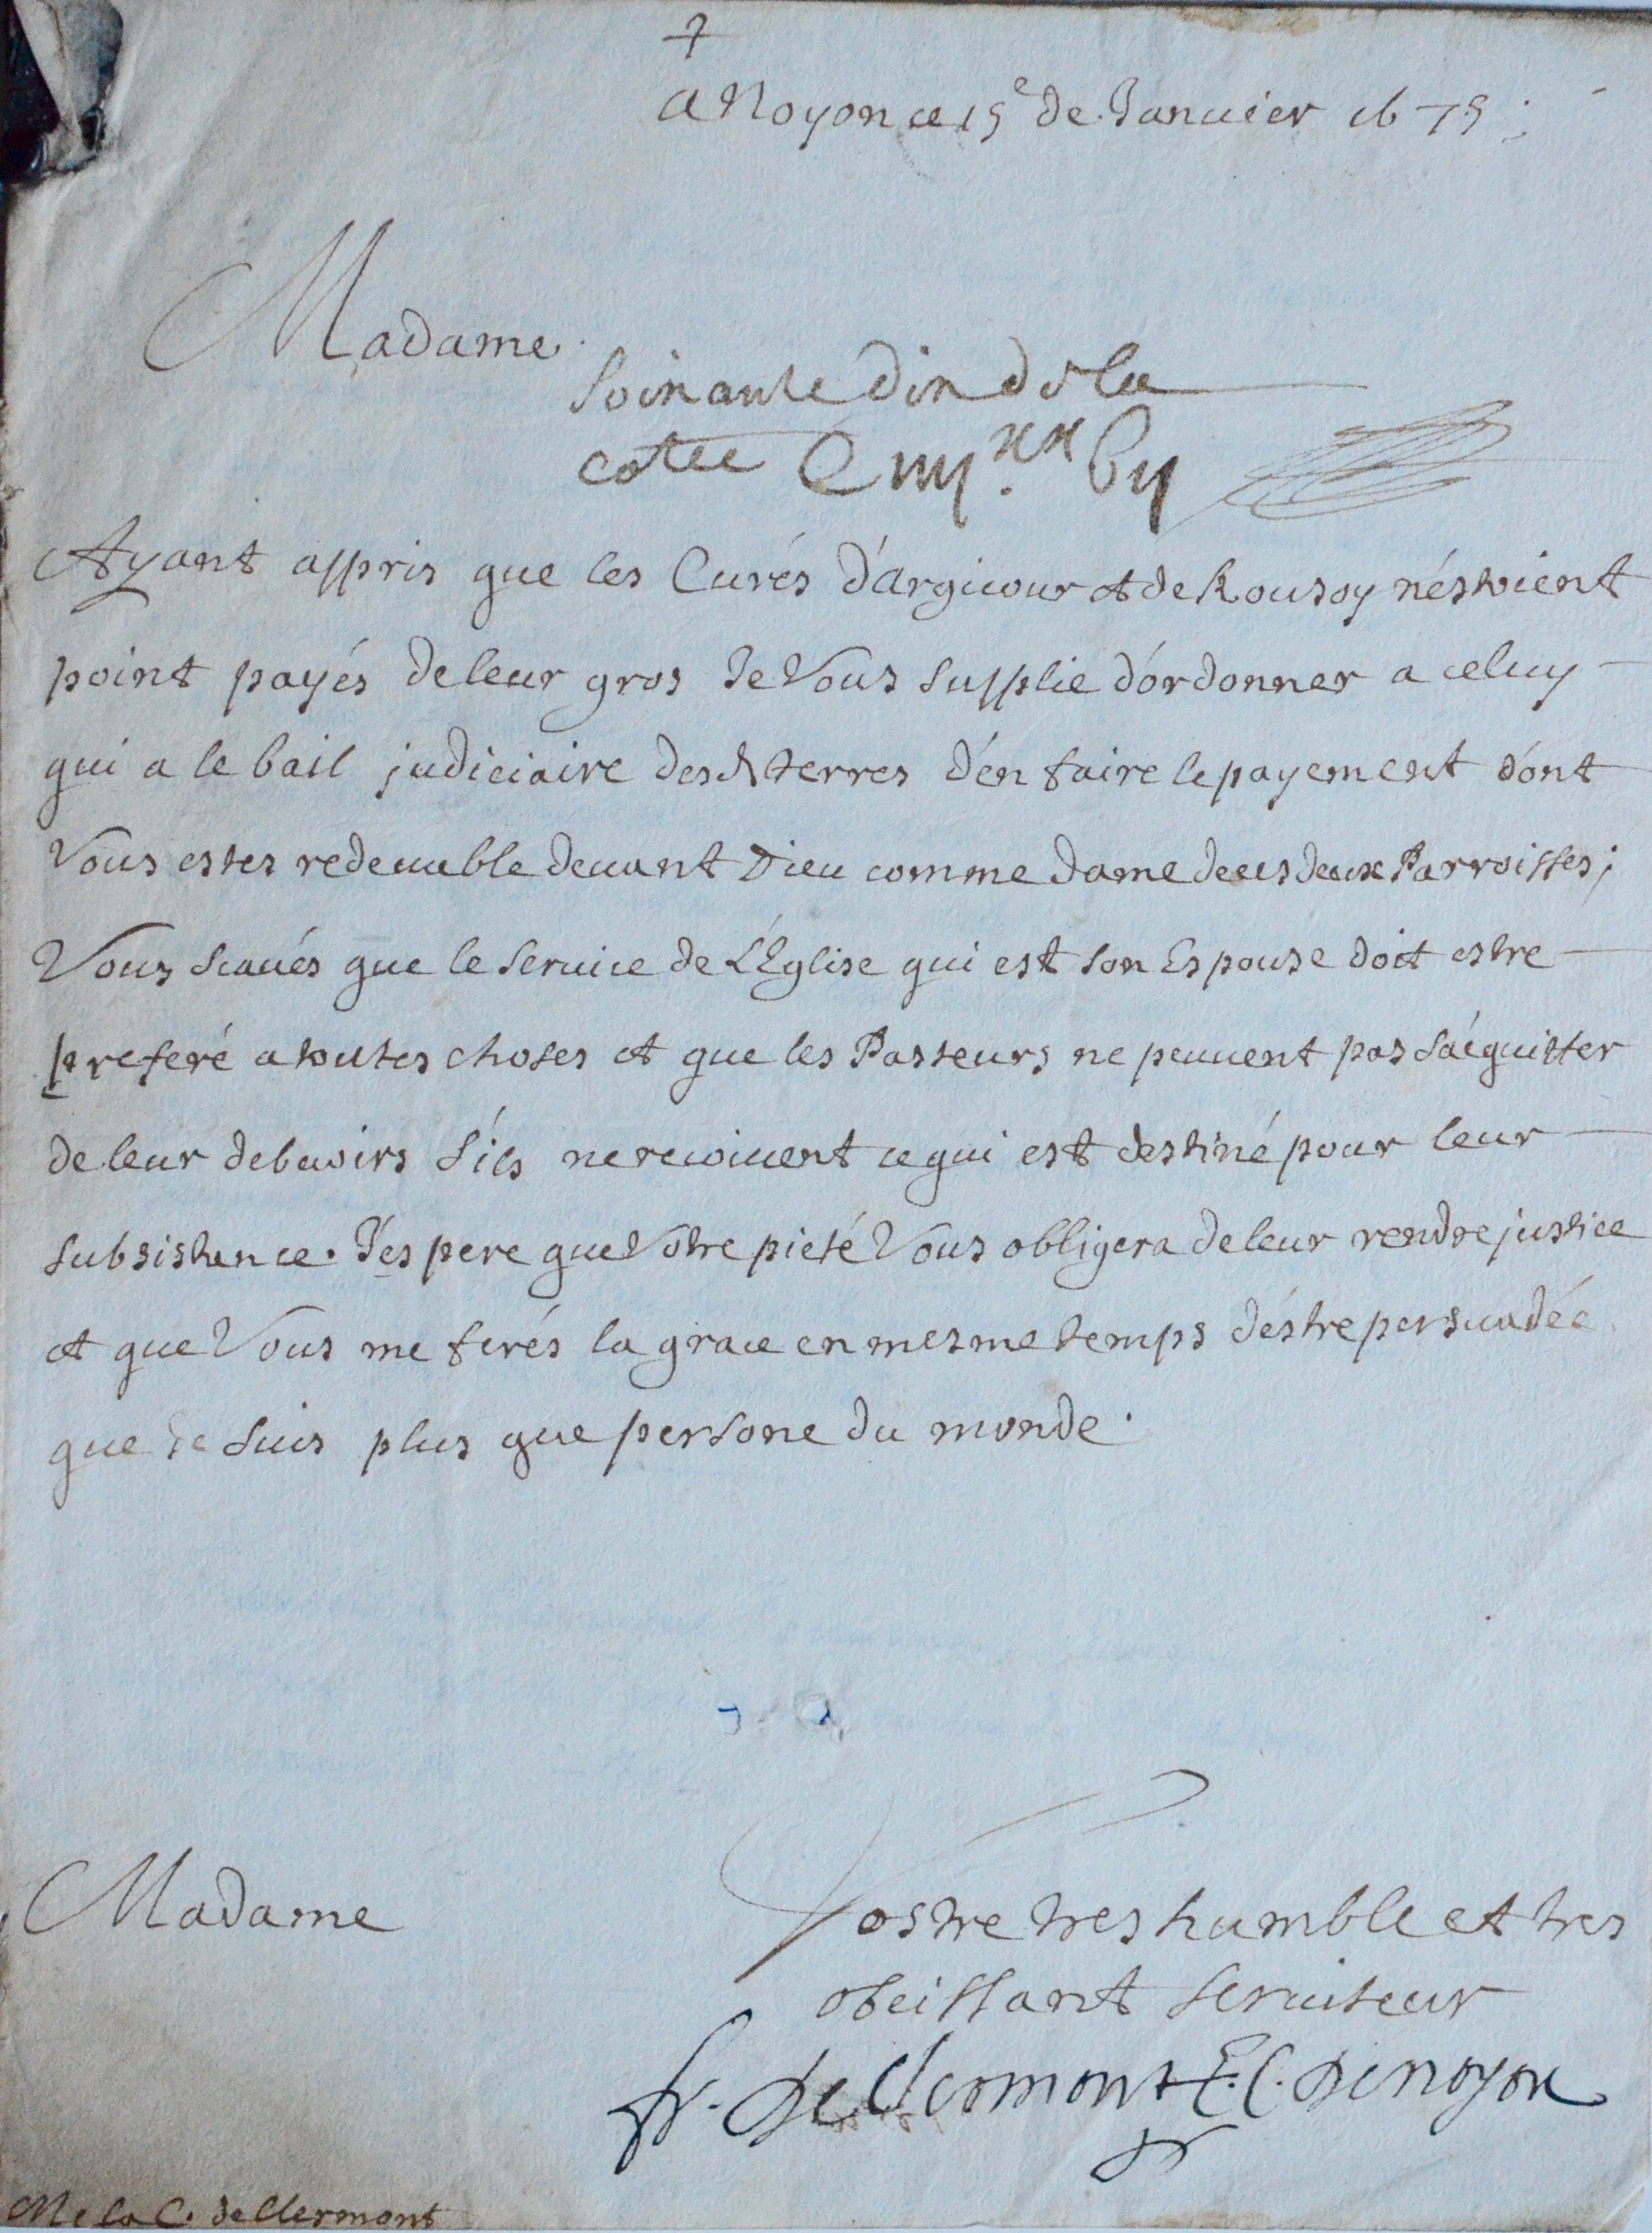 +
a Noyon ce 15e de Januier 1675;
Madame
Soixante dix de la
cotte C iiij.xx Vij
Ayant appris que les Curés d'Argicour et de Rousoy n'éstoient
point payés de leur gros Je Vous supplie d'órdonner a celuy
qui a le bail judiciaire desd terres d'én faire le payement dont
Vous estes redeuable deuant Dieu comme dame de ces deux Parroisses;
Vous scaués que le seruice de L'Eglise qui est son Espouse doit estre
preferé a toutes choses et que les Pasteurs ne peuuent pas s'áequitter
de leur debuoirs s'ils ne recoiuent ce qui est destiné pour leur
subsistence. J'éspere que Votre pieté Vous obligera de leur rendre justice
et que Vous me ferés la grace en mesme temps d'éstre persuadée
que Je suis plus que persone du monde.
Madame
Vostre tres humble et tres
obeissant seruiteur
fr. de Clermont E. C. de noyon
Me la C. de Clermont